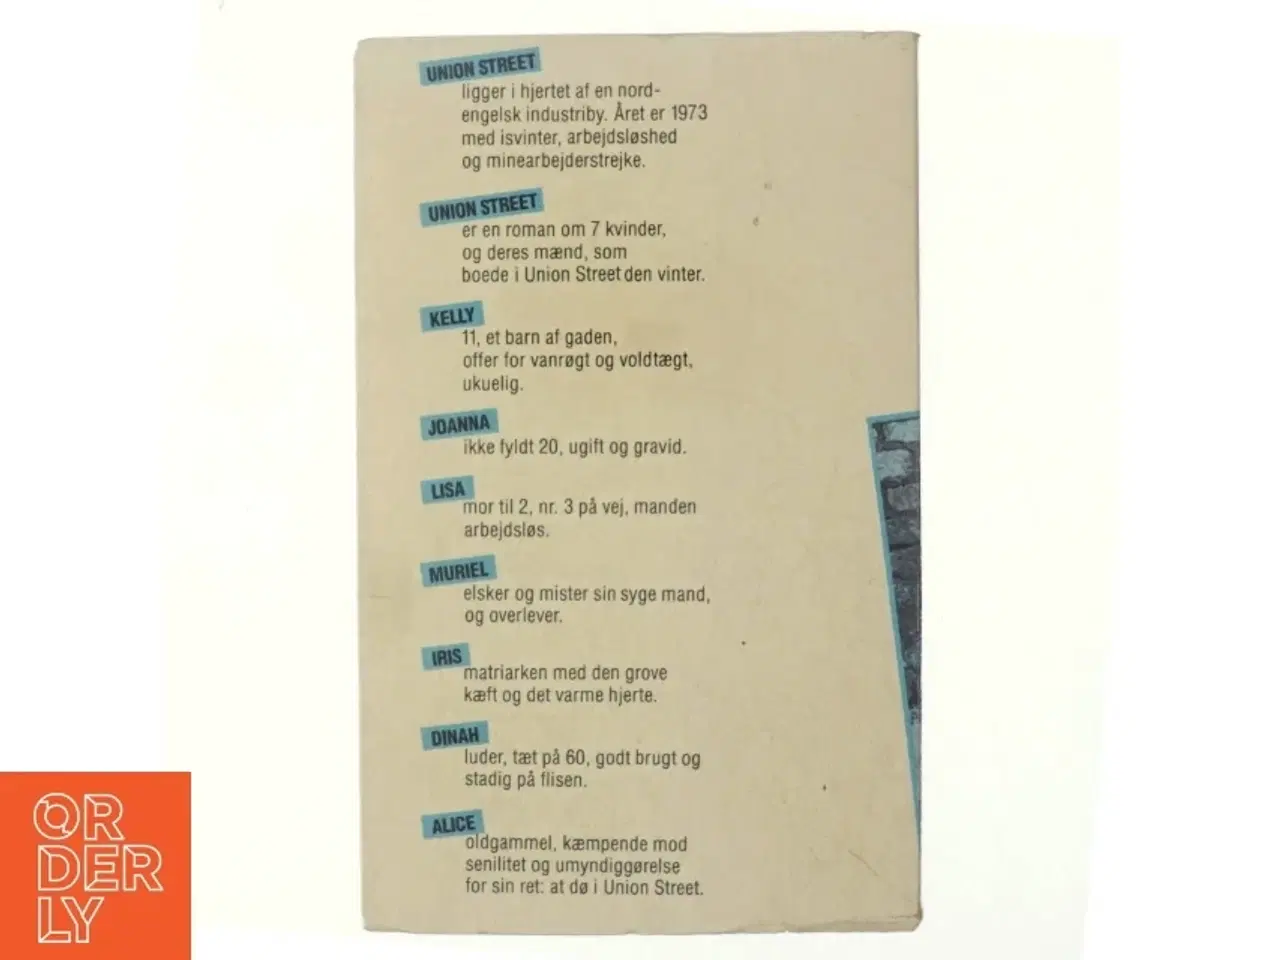 UNION STREET
ligger i hjertet af en nord-
engelsk industriby. Året er 1973
med isvinter, arbejdsløshed
og minearbejderstrejke.
UNION STREET
er en roman om 7 kvinder,
og deres mænd, som
boede i Union Street den vinter.
KELLY
11, et barn af gaden,
offer for vanrøgt og voldtægt,
ukuelig.
JOANNA
ikke fyldt 20, ugift og gravid.
LISA
mor til 2, nr. 3 på vej, manden
arbejdsløs.
MURIEL
elsker og mister sin syge mand,
og overlever.
IRIS
matriarken med den grove
kæft og det varme hjerte.
DINAH
luder, tæt på 60, godt brugt og
stadig på flisen.
ALICE
oldgammel, kæmpende mod
senilitet og umyndiggørelse
for sin ret: at dø i Union Street.
OR
DER
LY